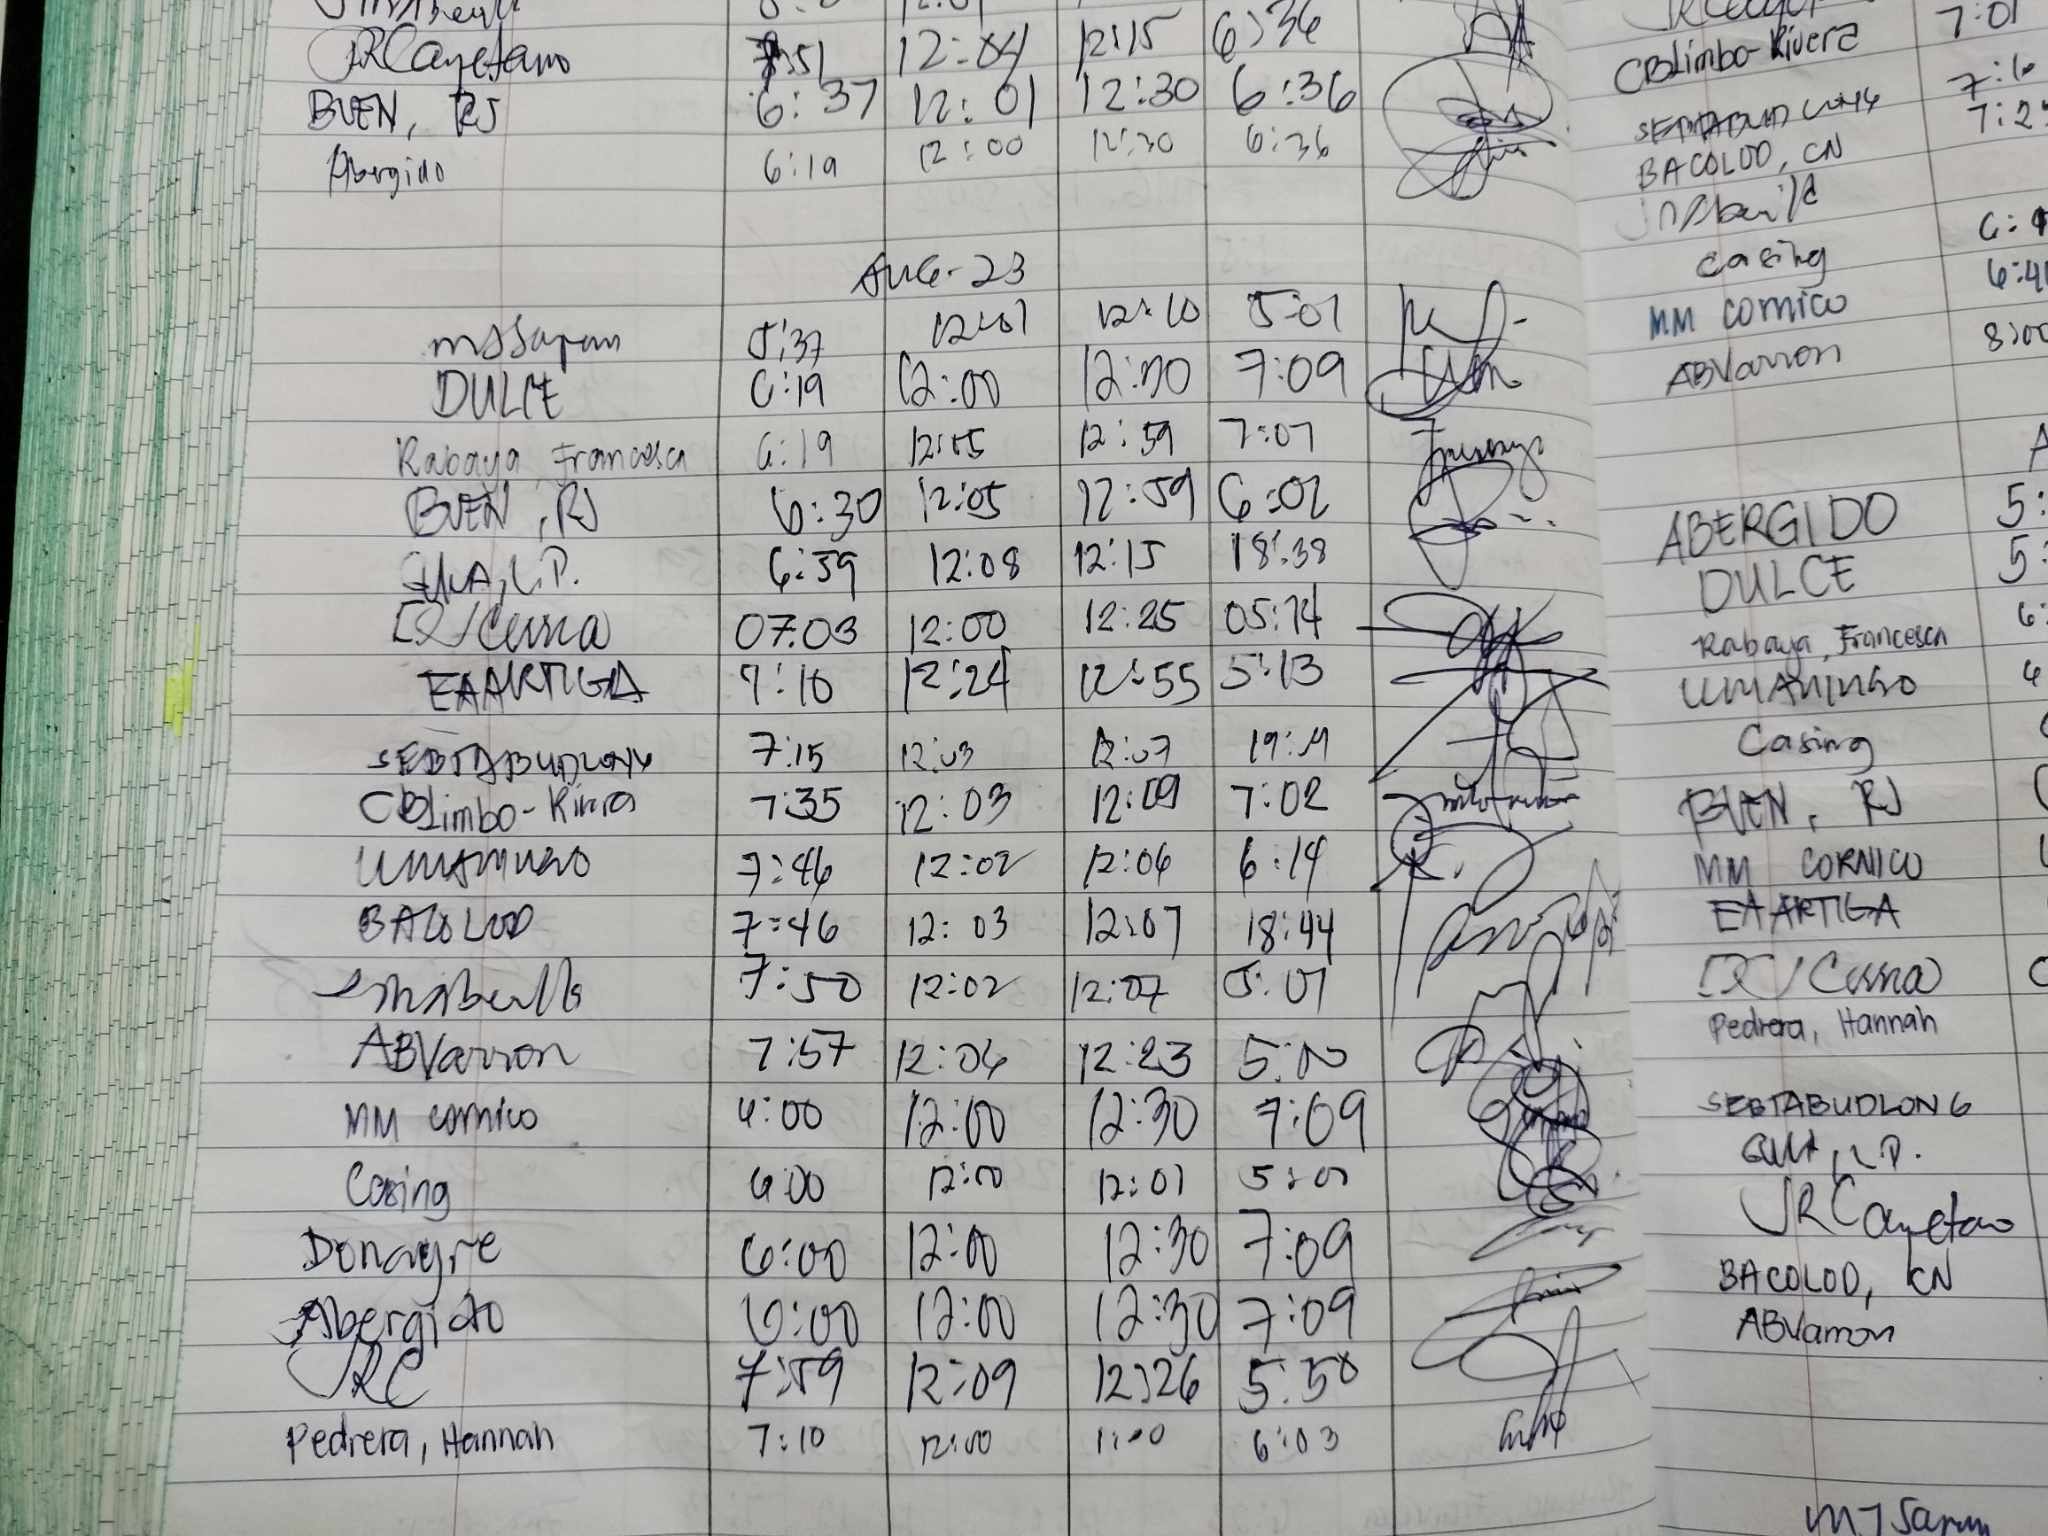 JRCayetano 7:51 12:04 12:15 6:36
BUEN, RJ 6:37 12:01 12:30 6:36
Abergido 6:19 12:00 12:30 6:36
AUG-23
5:37 12:01 12:10 5:01
DULCE 6:19 12:00 12:30 7:09
Rabaya, Francesca 6:19 12:05 12:59 7:07
BUEN, RJ 6:30 12:05 12:59 6:02
L.P. 6:59 12:08 12:15 18:38
07:03 12:00 12:25 05:14
EAARTIGA 7:10 12:24 12:55 5:13
SEBTABUDLONG 7:15 12:03 12:07
CBLimbo-Rivera 7:35 12:03 12:09 7:02
UMANINGO 7:46 12:02 12:06 6:14
BACOLOD 7:46 12:03 12:07 18:44
7:50 12:02 12:07 5:01
ABVarron 7:57 12:06 12:23 5:00
MM cornico 6:00 12:00 12:30 7:09
Casing 6:00 12:00 12:01 5:01
Donayre 6:00 12:00 12:30 7:09
Abergido 6:00 12:00 12:30 7:09
JRC 7:59 12:09 12:26 5:50
Pedrera, Hannah 7:10 12:00 1:00 6:03
7:01
CBLimbo-Rivera 7:10
SEBTABUDLONG 7:25
BACOLOD, CN
Casing
MM cornico
ABVarron 8:00
ABERGIDO 5:
DULCE 5:
Rabaya, Francesca 6:
UMANINGO
Casing
BUEN, RJ
MM CORNICO
EAARTIGA
Pedrera, Hannah
SEBTABUDLONG
L.P.
JRCayetano
BACOLOD, CN
ABVarron